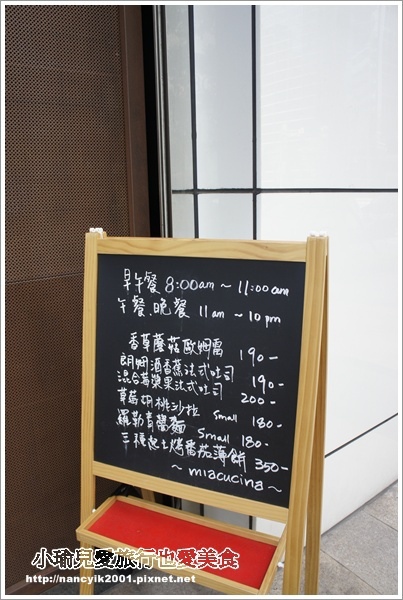 早午餐 8:00am ~ 11:00am
午餐.晚餐 11am ~ 10pm
香草蘑菇歐姆蕾 190-
朗姆酒香蕉法式吐司 190-
混合莓漿果法式吐司 200-
草莓胡桃沙拉 small 180-
羅勒青醬麵 small 180-
三種起士烤番茄薄餅 350-
~ miacucina ~
小瑜兒愛旅行也愛美食
http://nancyik2001.pixnet.net